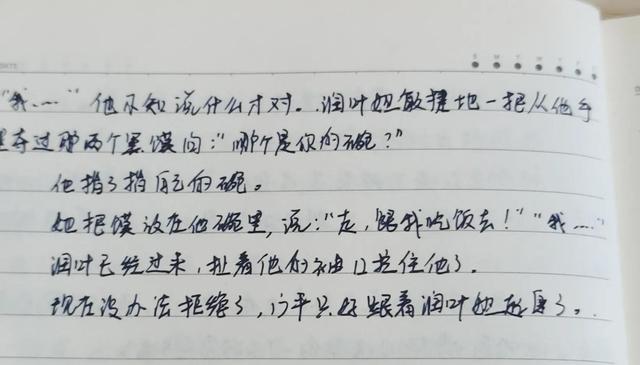 S M T W T F
"我……"他不知说什么才对。润叶姐敏捷地一把从他手
里夺过那两个黑馍问:"哪个是你的碗?"
他指了指自己的碗。
她把馍放在他碗里,说:"走,跟我吃饭去!""我……"
润叶已经过来,扯着他的袖口拉住他了。
现在没办法拒绝了,少平只好跟着润叶姐起身了。